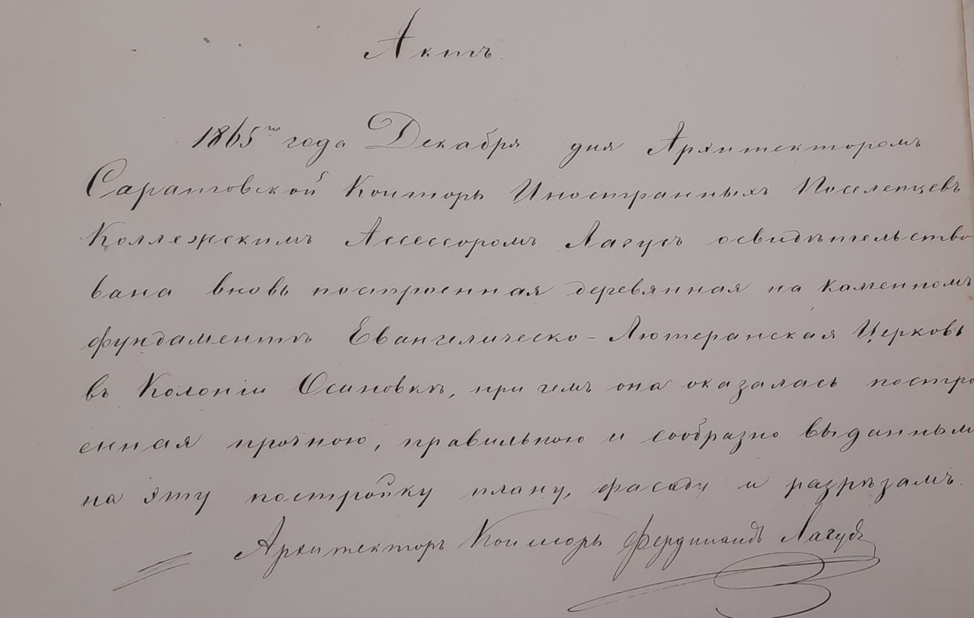 Актъ
1865го года Декабря дня Архитекторомъ
Саратовской Конторы Иностранныхъ Поселенцевъ
Коллежскимъ Ассессоромъ Лагусъ освидѣтельство
вана вновь построенная деревянная на каменномъ
фундаментѣ Евангелическо-Лютеранская Церковь
въ Колоніи Осиновкѣ, при чемъ она оказалась постро
енная прочною, правильною и сообразно выданнымъ
на эту постройку плану, фасаду и разрѣзамъ.
Архитекторъ Конторы Фердинандъ Лагусъ